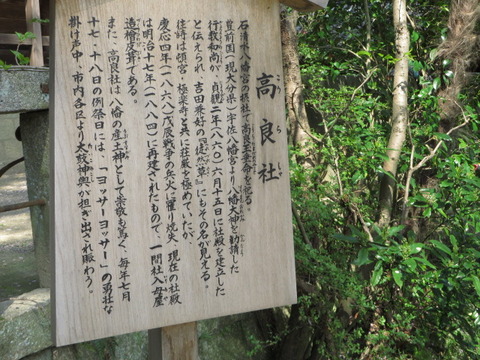 高良社
こうらしゃ
石清水八幡宮の摂社で高良玉垂命を祀る。
豊前国(現大分県)宇佐八幡宮より八幡大神を勧請した
行教和尚が、貞観二年(八六〇)六月十五日に社殿を建立した
と伝えられ、吉田兼好の『徒然草』にもその名が見える。
往時は頓宮・極楽寺と共に荘厳を極めていたが、
慶応四年(一八六八)戊辰戦争の兵火に罹り焼失、現在の社殿
は明治十七年(一八八四)に再建されたもので、一間社入母屋
造檜皮葺である。
また、高良社は八幡の産土神として崇敬も篤く、毎年七月
十七・十八日の例祭日には、「ヨッサーヨッサー」の勇壮な
掛け声中、市内各区より太鼓神輿が担ぎ出され賑わう。